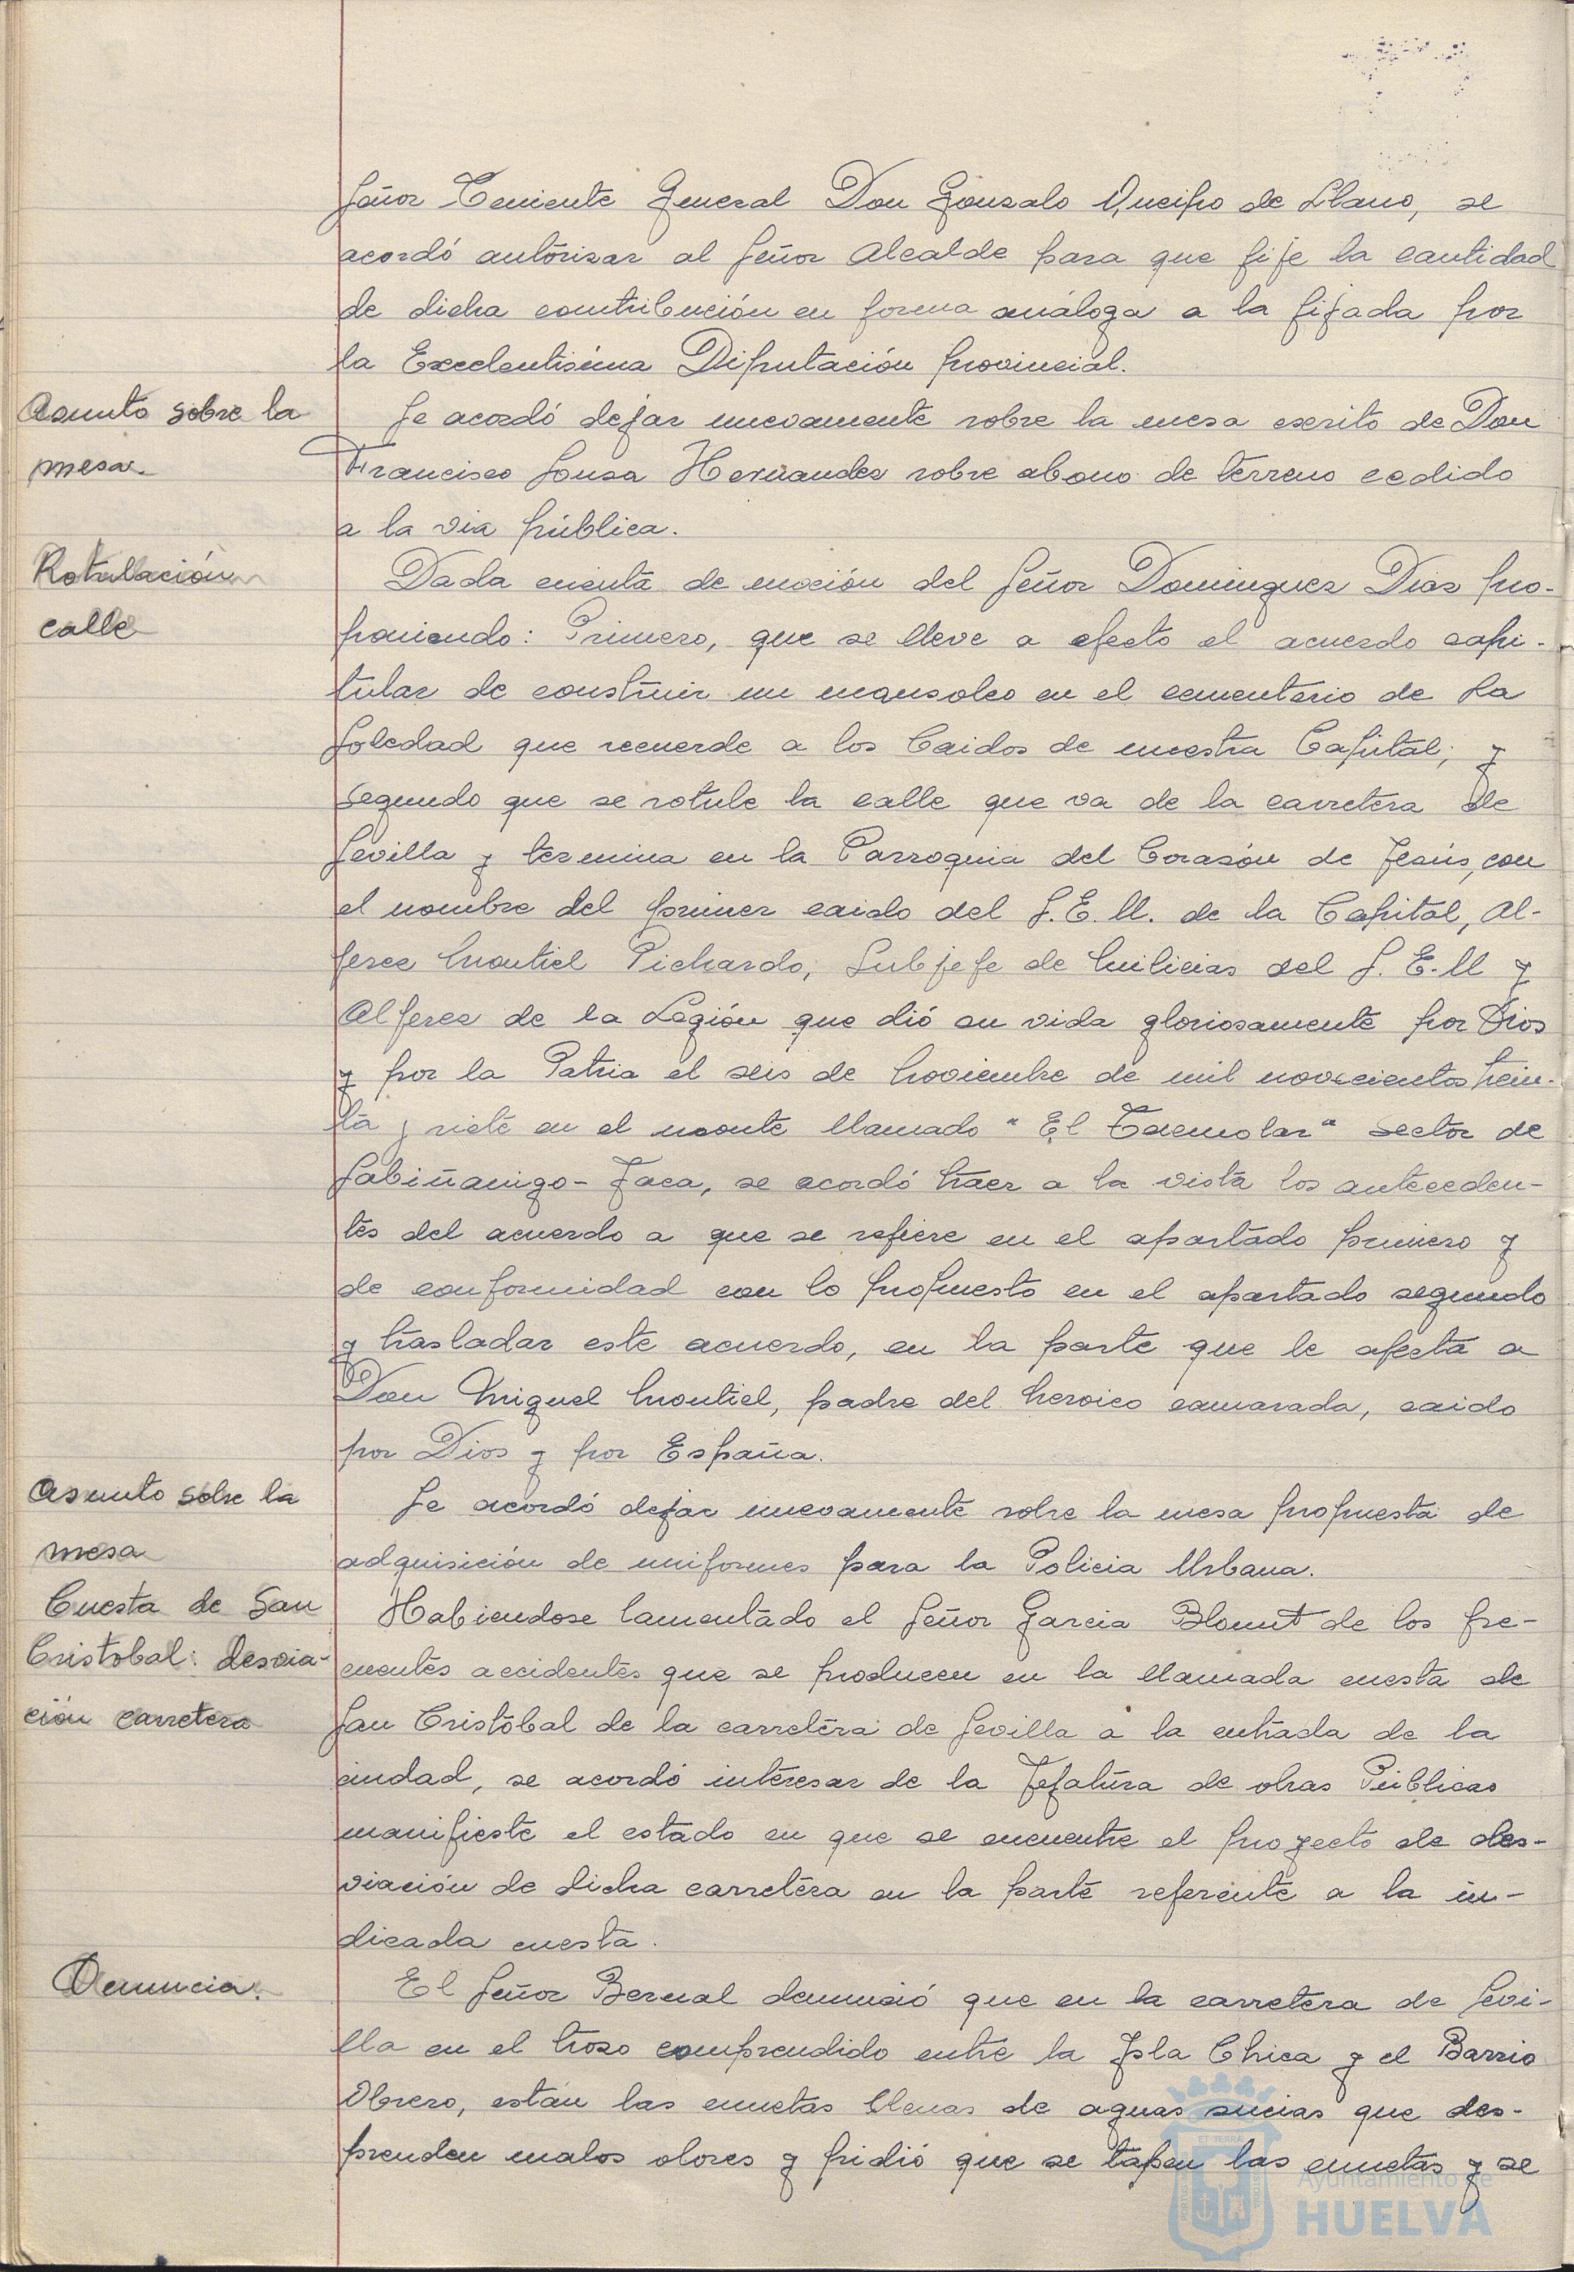 Señor Teniente General Don Gonzalo Queipo de Llano, se
acordó autorizar al Señor Alcalde para que fije la cantidad
de dicha contribución en forma análoga a la fijada por
la Excelentísima Diputación provincial.
Asunto sobre la
mesa.
Se acordó dejar nuevamente sobre la mesa escrito de Don
Francisco Sousa Hernandez sobre abono de terreno cedido
a la via pública.
Rotulación
calle
Dada cuenta de moción del Señor Dominguez Diaz pro-
poniendo: Primero, que se lleve a efecto el acuerdo capi-
tular de construir un mausoleo en el cementerio de La
Soledad que recuerde a los Caidos de nuestra Capital; y
segundo que se rotule la calle que va de la carretera de
Sevilla y termina en la Parroquia del Corazón de Jesús, con
el nombre del primer caido del S.E.U. de la Capital, Al-
ferez Montiel Pichardo, Subjefe de Milicias del S.E.U y
Alferez de la Legión que dió su vida gloriosamente por Dios
y por la Patria el seis de Noviembre de mil novecientos trein-
ta y siete en el monte llamado "El" sector de
Sabiñanigo-Jaca, se acordó traer a la vista los anteceden-
tes del acuerdo a que se refiere en el apartado primero y
de conformidad con lo propuesto en el apartado segundo
y trasladar este acuerdo, en la parte que le afecta a
Don Miguel Montiel, padre del heroico camarada, caido
por Dios y por España.
Asunto sobre la
mesa
Se acordó dejar nuevamente sobre la mesa propuesta de
adquisición de uniformes para la Policia Urbana.
Cuesta de San
Cristobal: desvia-
ción carretera
Habiendose lamentado el Señor Garcia Blount de los fre-
cuentes accidentes que se producen en la llamada cuesta de
San Cristóbal de la carretera de Sevilla a la entrada de la
ciudad, se acordó interesar de la Jefatura de obras Públicas
manifieste el estado en que se encuentre el proyecto de des-
viación de dicha carretera en la parte referente a la in-
dicada cuesta.
Denuncia.
El Señor Bernal denunció que en la carretera de Sevi-
lla en el trozo comprendido entre la Isla Chica y el Barrio
Obrero, están las cunetas llenas de aguas sucias que des-
prenden malos olores y pidió que se tapen las cunetas y se
Ayuntamiento de
HUELVA